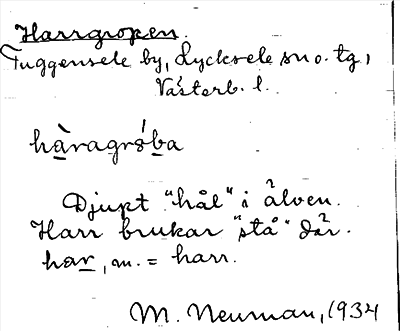 Harrgropen.
Tuggensele by, Lycksele sn o. tg,
Västerb. l.
hàragróba
Djupt "hål" i älven.
Harr brukar "stå" där.
har, m. = harr.
M. Neuman, 1934